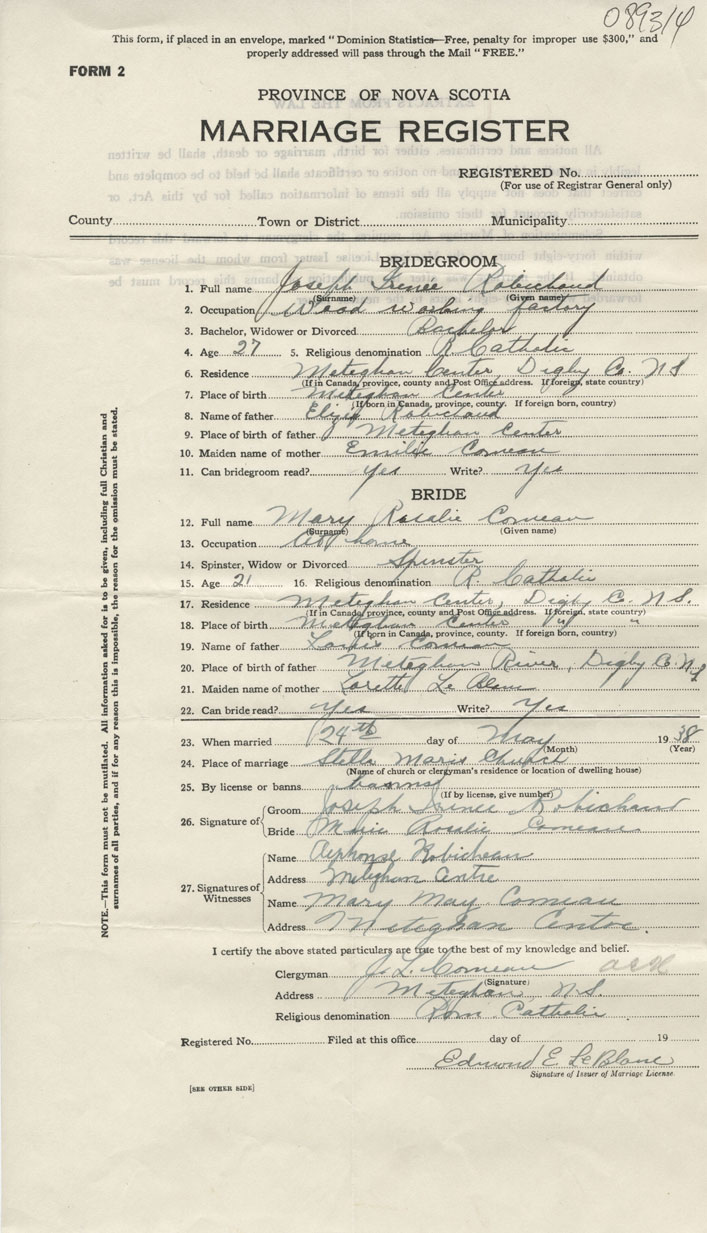 089314
This form, if placed in an envelope, marked "Dominion Statistics—Free, penalty for improper use $300," and
properly addressed will pass through the Mail "FREE."
FORM 2
PROVINCE OF NOVA SCOTIA
MARRIAGE REGISTER
REGISTERED No.
(For use of Registrar General only)
County Town or District Municipality
BRIDEGROOM
1. Full name Joseph Irenee Robichaud
(Surname) (Given name)
2. Occupation Wood working factory
3. Bachelor, Widower or Divorced Bachelor
4. Age 27 5. Religious denomination R. Catholic
6. Residence Meteghan Center, Digby Co. N S
(If in Canada, province, county and Post Office address. If foreign, state country)
7. Place of birth Meteghan Center
(If born in Canada, province, county. If foreign born, country)
8. Name of father Robichaud
9. Place of birth of father Meteghan Center
10. Maiden name of mother Emilie Comeau
11. Can bridegroom read? Yes Write? Yes
BRIDE
12. Full name Mary Rosalie Comeau
(Surname) (Given name)
13. Occupation At home
14. Spinster, Widow or Divorced Spinster
15. Age 21 16. Religious denomination R. Catholic
17. Residence Meteghan Center, Digby Co. N.S.
(If in Canada, province, county and Post Office address. If foreign, state country)
18. Place of birth Meteghan Center " "
(If born in Canada, province, county. If foreign born, country)
19. Name of father Louis Comeau
20. Place of birth of father Meteghan River, Digby Co. N.S
21. Maiden name of mother Lorette Le Blanc
22. Can bride read? Yes Write? Yes
23. When married 24th day of May 1938
(Month) (Year)
24. Place of marriage Stella Maris Church
(Name of church or clergyman's residence or location of dwelling house)
25. By license or banns banns
(If by license, give number)
26. Signature of
Groom Joseph Irenee Robichaud
Bride Marie Rosalie Comeau
27. Signatures of Witnesses
Name Alphonse Robicheau
Address Meteghan Centre
Name Mary May Comeau
Address Meteghan Centre.
I certify the above stated particulars are true to the best of my knowledge and belief.
Clergyman J. L. Comeau
(Signature)
Address Meteghan N.S.
Religious denomination Rom Catholic
Registered No. Filed at this office day of 19
Edmond E. LeBlanc
Signature of Issuer of Marriage License.
[SEE OTHER SIDE]
NOTE.—This form must not be mutilated. All information asked for is to be given, including full Christian and
surnames of all parties, and if for any reason this is impossible, the reason for the omission must be stated.